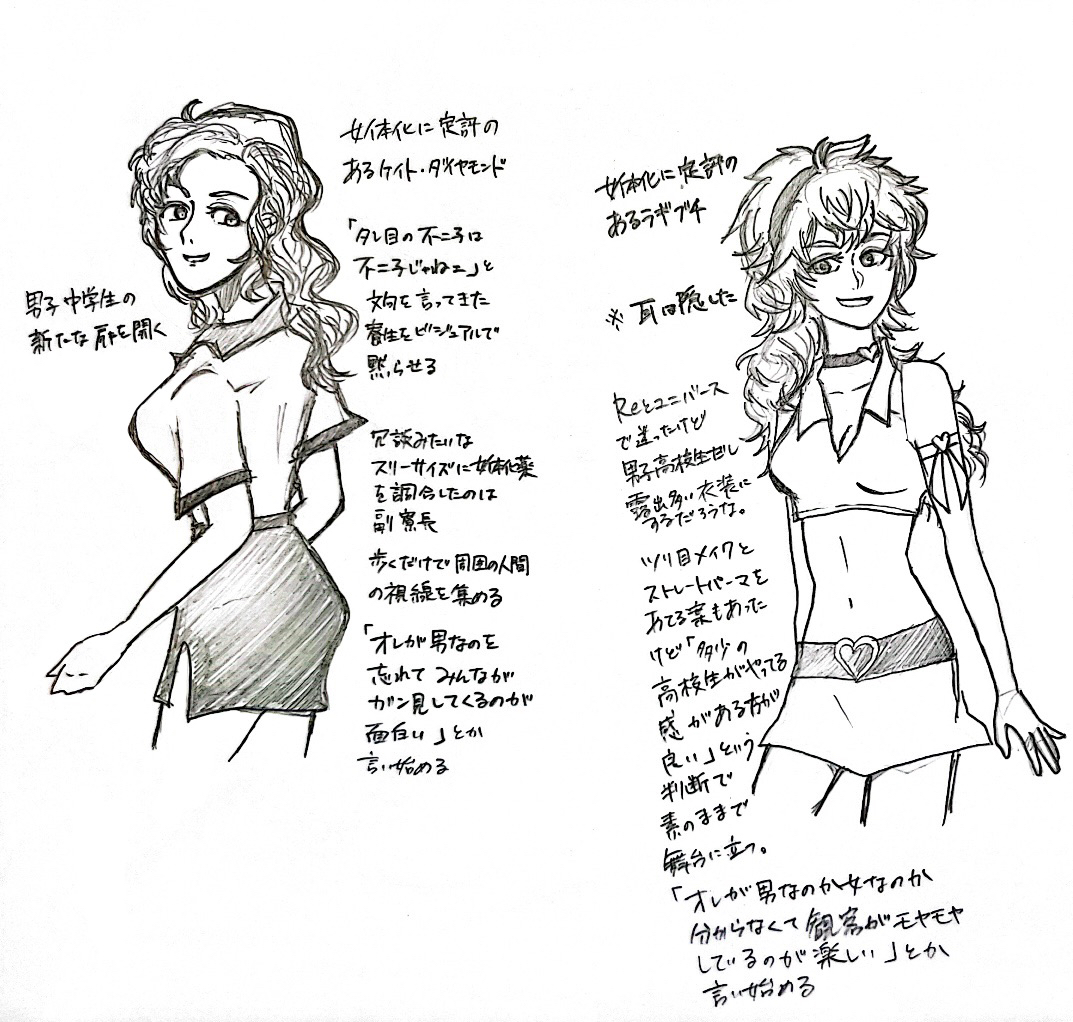 女体化に定評の
あるケイト・ダイヤモンド
「タレ目の不二子は
不二子じゃねェ」と
文句を言ってきた
寮生をビジュアルで
黙らせる
男子中学生の
新たな扉を開く
冗談みたいな
スリーサイズに女体化薬
を調合したのは
副寮長
歩くだけで周囲の人間
の視線を集める
「オレが男なのを
忘れてみんなが
ガン見してくるのが
面白い」とか
言い始める
女体化に定評の
あるラギブチ
※耳は隠した
Reとユニバース
で迷ったけど
男子高校生ぜし
露出多い衣装に
するだろうな。
ツリ目メイクと
ストレートパーマを
あてる案もあった
けど「多少の
高校生がやってる
感がある方が
良い」という
判断で
素のままで
舞台に立つ。
「オレが男なのか女なのか
分からなくて観客がモヤモヤ
しているのが楽しい」とか
言い始める